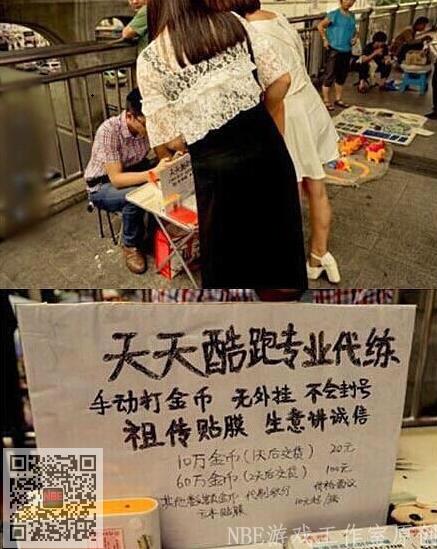 天天酷跑专业代练
手动打金币 无外挂 不会封号
祖传贴膜 生意讲诚信
10万金币(1天后交货) 20元
60万金币(2天后交货) 100元
价格面议
10元起
NBE
NBE游戏工作室原创